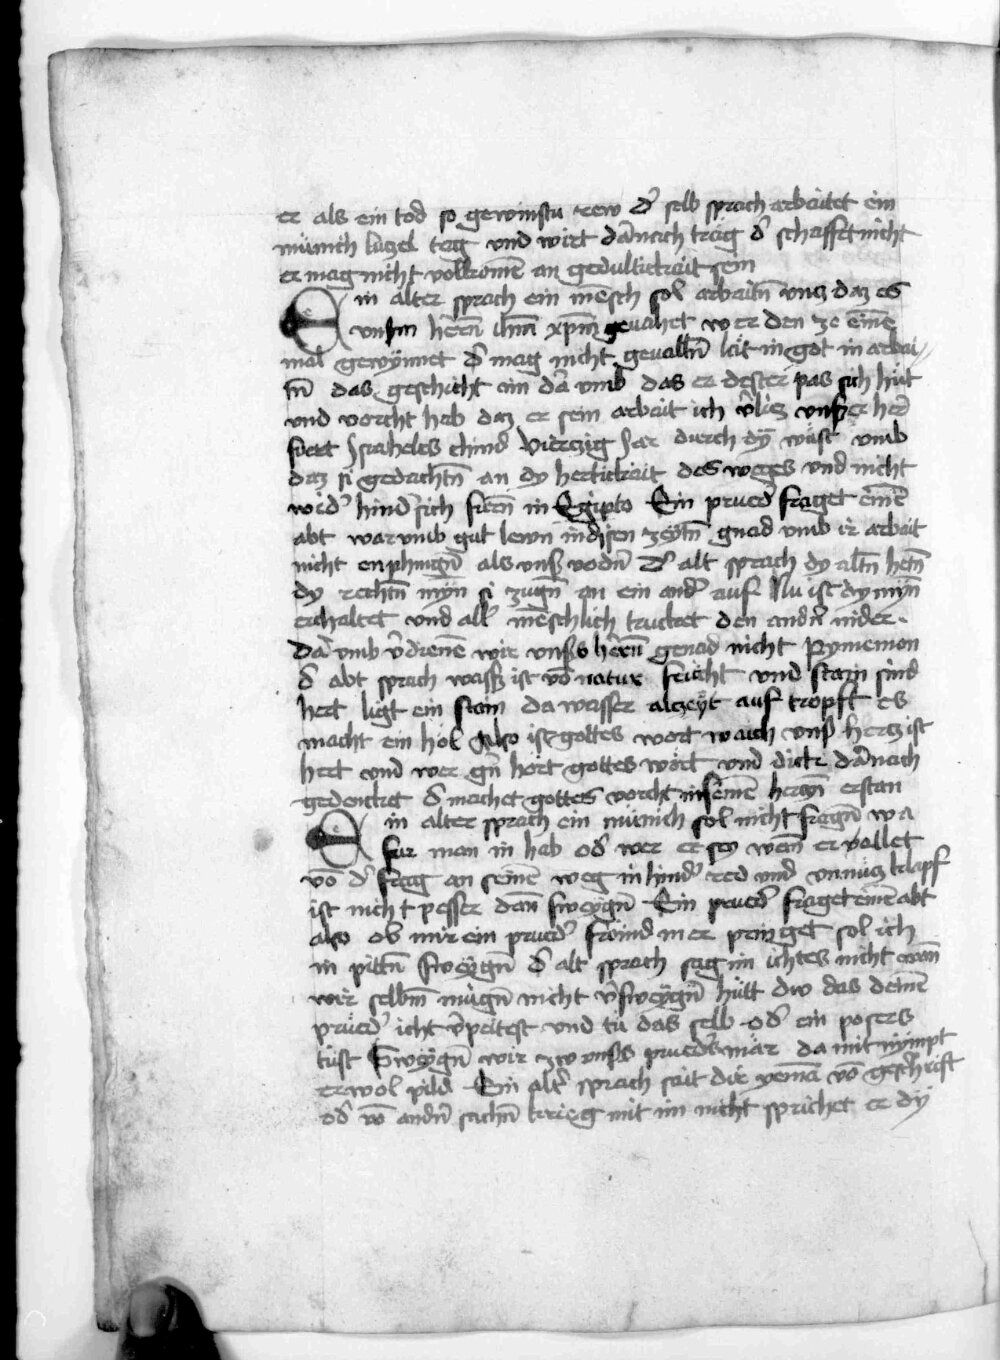 er als ein tod so gewinstu rew d͛ selb sprach arbaitet ein
münich luczel tag vnd wirt dar̄nach träg d͛ schaffet nicht
er mag nicht volkomē an gedultickait sein
Ein alter sprach ein mēsch sol arbaitn̄ vncz daz es
vnsm̄ herrn̄ ihm̄ xpm̄ geuahet wer den ze einē
mal gewÿnnet d͛ mag nicht geualln̄ leit in got in arbai
tn̄ das geschicht im dar̄ vmb das er dester pas sich hüt
vnd vorcht hab daz er sein arbait icht v͛lies vnszer her͛
fuert Israhelis chind vierczig Jar durch dÿ wüst vmb
daz si gedachtn̄ an dy hertickait des weges vnd nicht
wid͛ hind͛ sich kern̄ in Egipto Ein prued͛ fraget einē
abt warvmb gut lewt in disen zeÿtn̄ gnad vmb ir arbait
nicht enphingn̄ als vnsz vodn̄ d͛ alt sprach dy altn̄ hettn̄
dy rechtn̄ mÿn̄ si zugn̄ an ein and͛ auf Nu ist dy mÿn̄
erchaltet vnd all͛ mēschlich trucket den andn̄ nider
dar̄ vmb v͛dienē wir vnsers herrn̄ genad nicht Pymemon
d͛ abt sprach wassz͛ ist vō natur feücht vnd stain sind
hert ligt ein stain da wasser alczeÿt auf tropft es
macht ein hol Also ist gottes wort waich vnsz hercz ist
hert vnd wer gn̄ hört gottes wort vnd dick dar̄nach
gedencket d͛ machet gottes vorcht in seinē herczn̄ erstan
Ein alter sprach ein münich sol nicht fragn̄ wa
fur man in hab od͛ wer er sey wann̄ er vallet
vō d͛ frag an seinē weg in hind͛ red vnd vnnücz klapf
ist nicht pesser dan̄ sweygn̄ Ein prued͛ fraget einē abt
also ob mir ein prued͛ frömd mer pringet sol ich
in pittn̄ sweÿgn̄ d͛ alt sprach sag im ichtes nicht wann
wir selbm̄ mügn̄ nicht v͛sweÿgn̄ hütt dw das deinē
prüed͛ icht v͛peitest vnd tü das selb od͛ ein posers
tüst Sweÿgn̄ wir zw vnsers prued͛s mär da mit nÿmpt
er wol pild Ein alt͛ sprach sait dir yemā vō geschrift
od͛ vō andn̄ sachn̄ krieg mit im nicht sprichet er dy